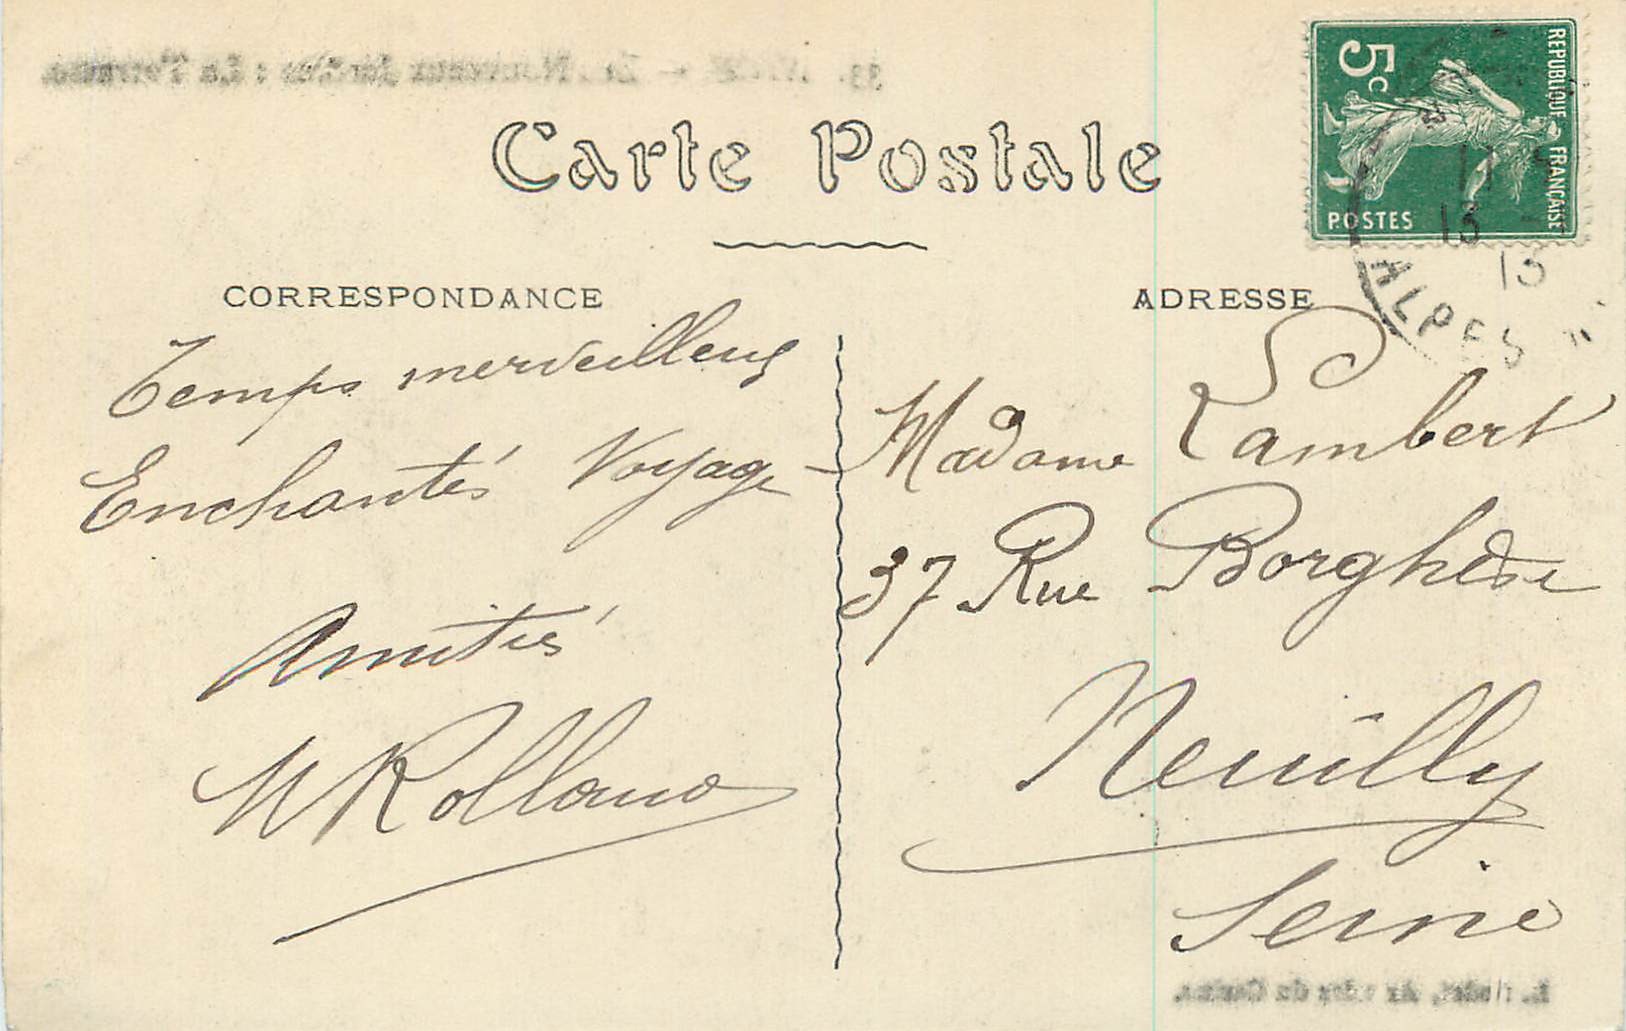 Carte Postale
CORRESPONDANCE
Temps merveilleux
Enchantés Voyage
Amitiés
M Rolland
REPUBLIQUE FRANÇAISE
5c
POSTES
13
13
ALPES
ADRESSE
Madame Lambert
37 Rue Borghèse
Neuilly
Seine